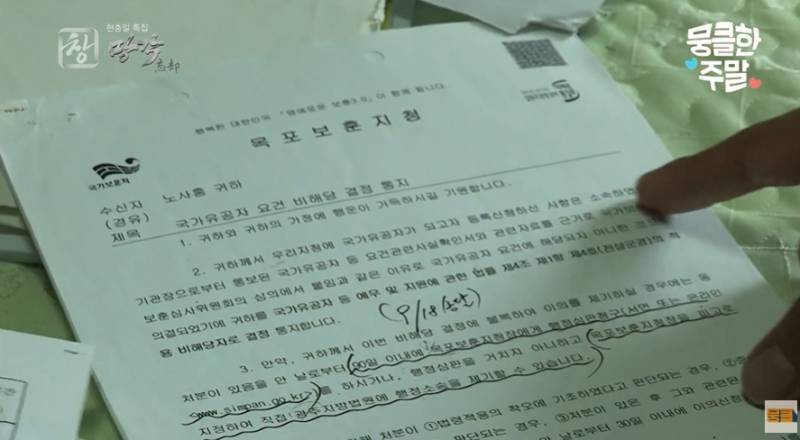 현충일 특집
창
망각
忘却
뭉클한
주말
행복한 대한민국 「명예로운 보훈3.0」이 함께 합니다.
목포보훈지청
국가보훈처
수신자 노사홍 귀하
(경유)
제목 국가유공자 요건 비해당 결정 통지
1. 귀하와 귀하의 가정에 행운이 가득하시길 기원합니다.
2. 귀하께서 우리지청에 국가유공자가 되고자 등록신청하신 사항은 소속하였
기관장으로부터 통보된 국가유공자 등 요건관련사실확인서와 관련자료를 근거로 국가보
보훈심사위원회의 심의에서 붙임과 같은 이유로 국가유공자 요건에 해당되지 아니한
의결되었기에 귀하를 국가유공자 등 예우 및 지원에 관한 법률 제4조 제1항 제4호(전상군경)의 적
용 비해당자로 결정 통지합니다.
3. 만약, 귀하께서 이번 비해당 결정에 불복하여 이의를 제기하실 경우에는 동
처분이 있음을 안 날로부터 90일 이내에 목포보훈지청장에게 행정심판청구(서면 또는 온라인
www.simpan.go.kr)를 하시거나, 행정심판을 거치지 아니하고 목포보훈지청장을 피고로
지정하여 직접 광주지방법원에 행정소송을 제기할 수 있습니다.
처분이 ①법령적용의 착오에 기초하였다고 판단되는 경우,
판단되는 경우, ③처분이 있은 후 그와 관련된
날로부터 30일 이내에 이의신청
뭉클